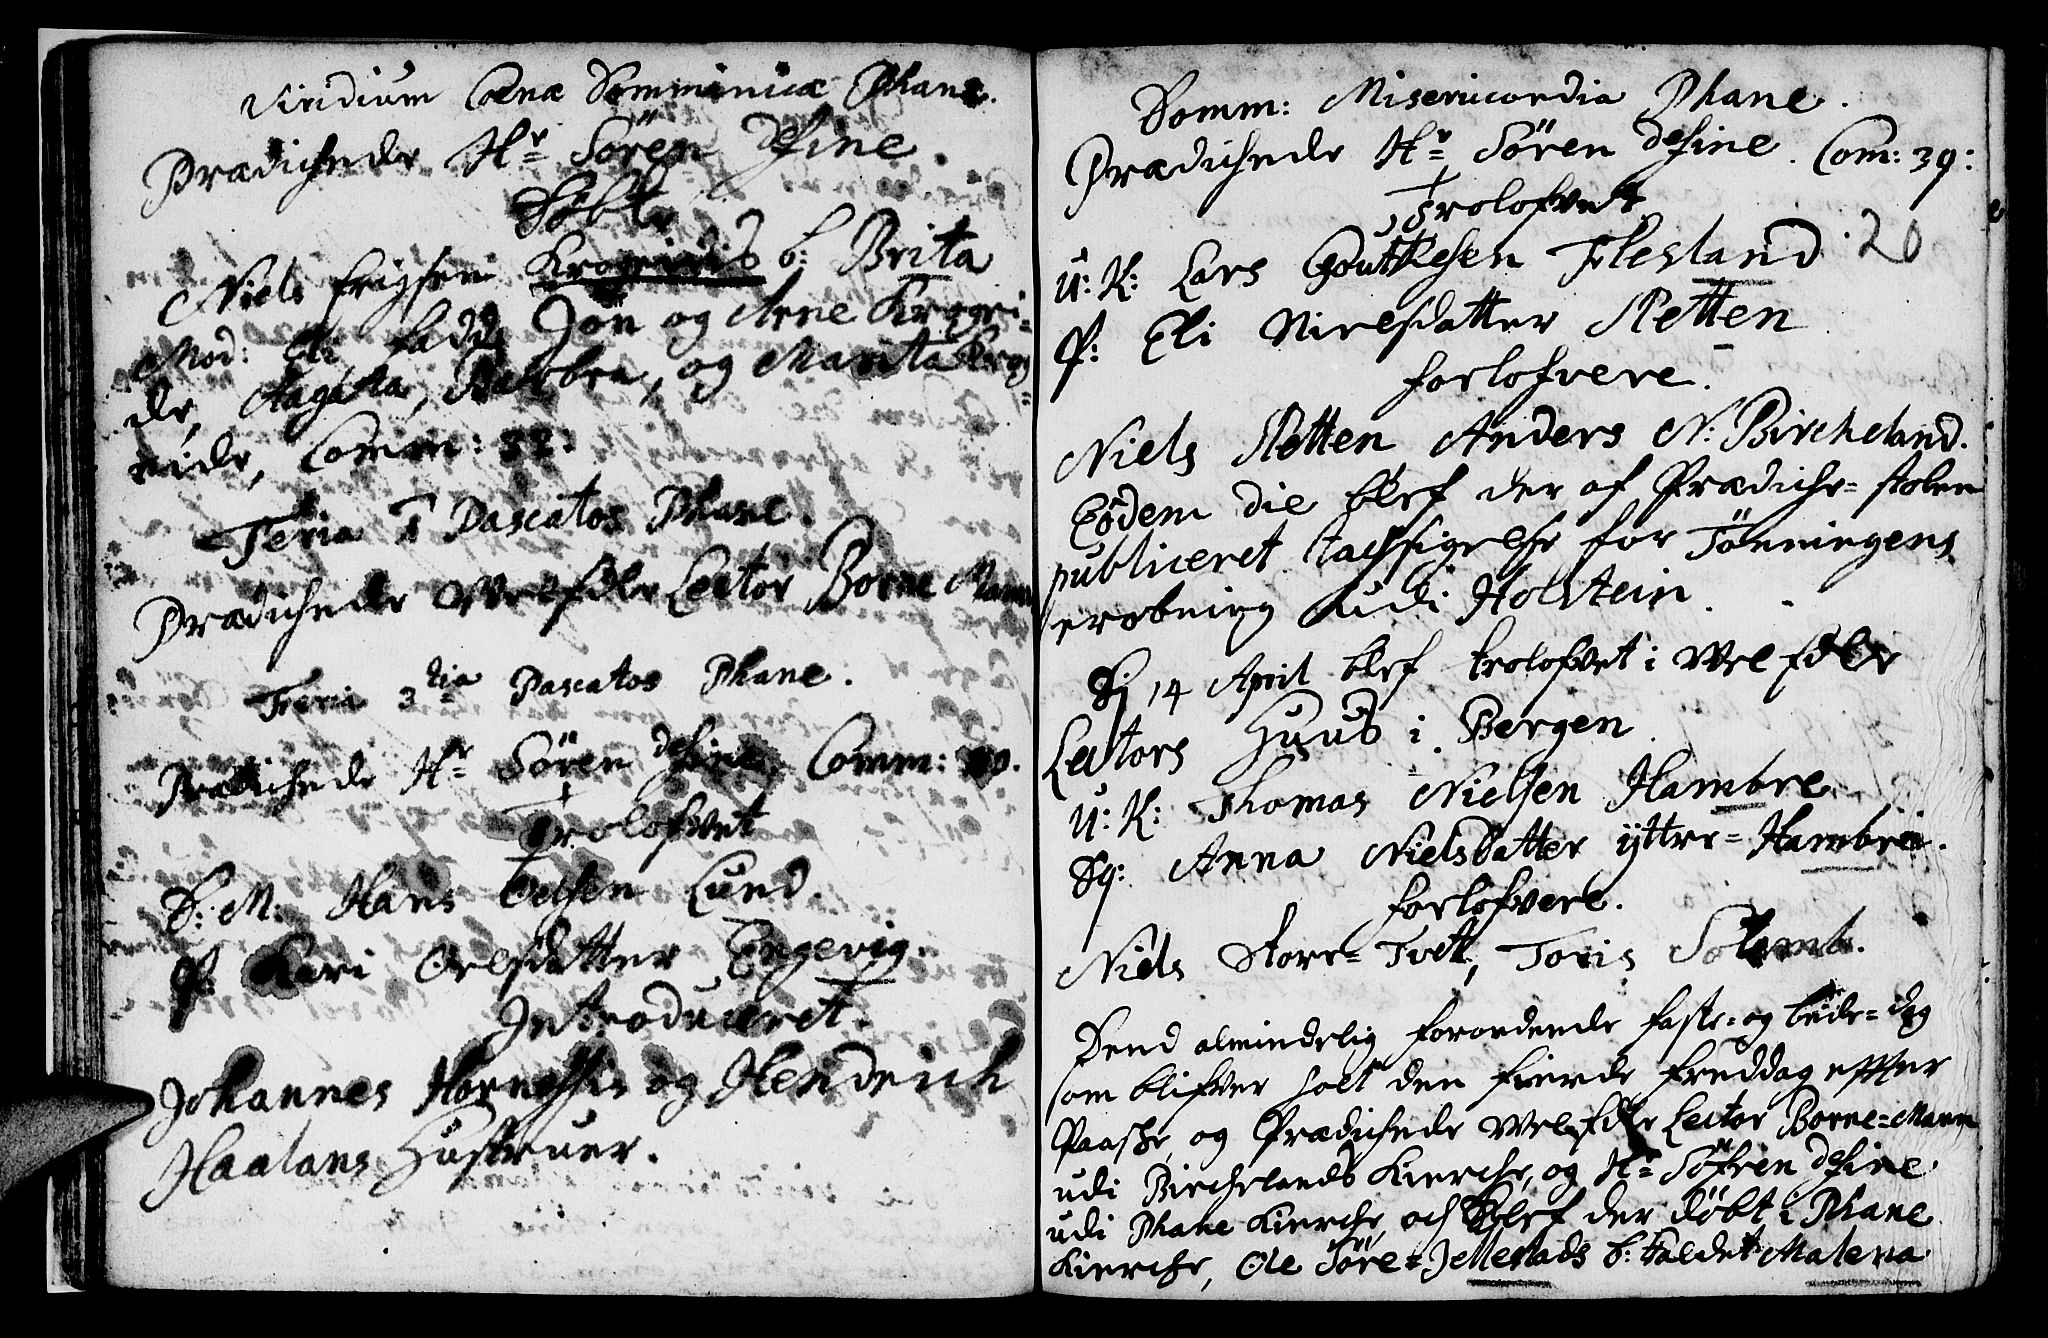 Viridium Coena Domminicæ Phane.
Prædichede Hr Sören Heine.
Döbte
Niels Erigsen Krogeids b: Brita
Mod: Eli fadd. Jon og Arne Krogei-
de, Aagata, Barbra, og Marita Krog-
eide, Comm: 32:
Feria 1 Pascatos Phane.
Prædichede Welfdle Lector Borne Mann
Feria 3tia Pascatos Phane.
Prædichede Hr Sören Heine, Comm: 80.
Trolofvet
D: M: Hans Oelsen Lund.
P: Kari Oelsdatter Engevig.
Introduceret.
Johannes og Hendrich
Haalans Hustruer.
Domm: Misericordia Phane.
Prædichede Hr Sören Heine. Com: 39:
Trolofvet 20
U: K: Lars Goutesen Flesland
P: Eli Nielsdatter Stetten
forlofvere.
Niels Stetten Anders N: Bircheland.
Eodem die blef der af Prædiche-stolen
publiceret tachsigelse for Tönningens
erobning udi Holstein.
D: 14 April blef trolofvet i Welfdle
Lectors Huus i Bergen.
U: K: Thomas Nielsen Hambre
Anna Nielsdatter yttre-Hambre.
forlofvere.
Niels Store-Tvett, Toris
Dend almindelig forordnede faste- og bede-dag
som blifver holt den fierde freddag effter
Paaske, og Prædichede Welfdle Lector Borne-Mann
udi Birchelands Kierche, og Hr Söfren Heine
udi Phane Kierche, och blef der döbt i Phane
Kierche, Ole Söre-Jellestads b: kaldet Malena